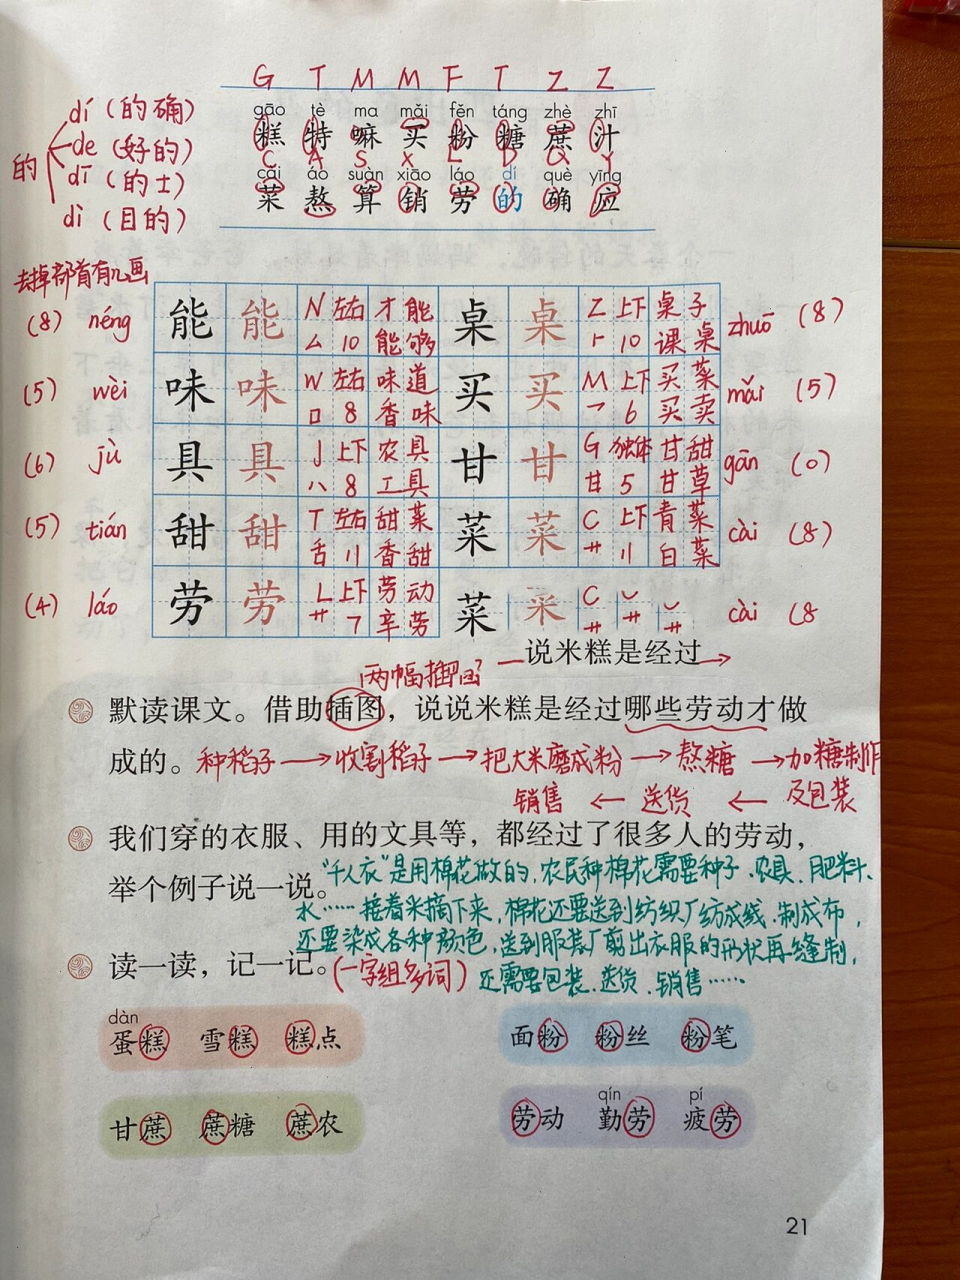 G T M M F T Z Z
gāo tè ma mǎi fěn táng zhè zhī
糕 特 嘛 买 粉 糖 蔗 汁
C A S X L D Q Y
cài áo suàn xiāo láo dí què yīng
菜 熬 算 销 劳 的 确 应
的
dí (的确)
de (好的)
dī (的士)
dì (目的)
去掉部首有几画
(8) néng 能 能 N 左右 才能 桌 桌 Z 上下 桌子 zhuō (8)
厶 10 能够 ⺊ 10 课桌
(5) wèi 味 味 W 左右 味道 买 买 M 上下 买菜 mǎi (5)
口 8 香味 乛 6 买卖
(6) jù 具 具 J 上下 农具 甘 甘 G 独体 甘甜 gān (0)
八 8 工具 甘 5 甘草
(5) tián 甜 甜 T 左右 甜菜 菜 菜 C 上下 青菜 cài (8)
舌 11 香甜 艹 11 白菜
(4) láo 劳 劳 L 上下 劳动 菜 菜 C cài (8
艹 7 辛劳 艹
一说米糕是经过→
两幅插图?
默读课文。借助插图，说说米糕是经过哪些劳动才做
成的。种稻子→收割稻子→把大米磨成粉→熬糖→加糖制作
销售←送货←及包装
我们穿的衣服、用的文具等，都经过了很多人的劳动，
举个例子说一说。"千人衣"是用棉花做的,农民种棉花需要种子、农具、肥料、
水……接着采摘下来,棉花还要送到纺织厂纺成线、制成布,
还要染成各种颜色,送到服装厂剪出衣服的形状再缝制,
读一读，记一记。(一字组多词) 还需要包装、送货、销售……
dàn
蛋糕 雪糕 糕点 面粉 粉丝 粉笔
qín pí
甘蔗 蔗糖 蔗农 劳动 勤劳 疲劳
21